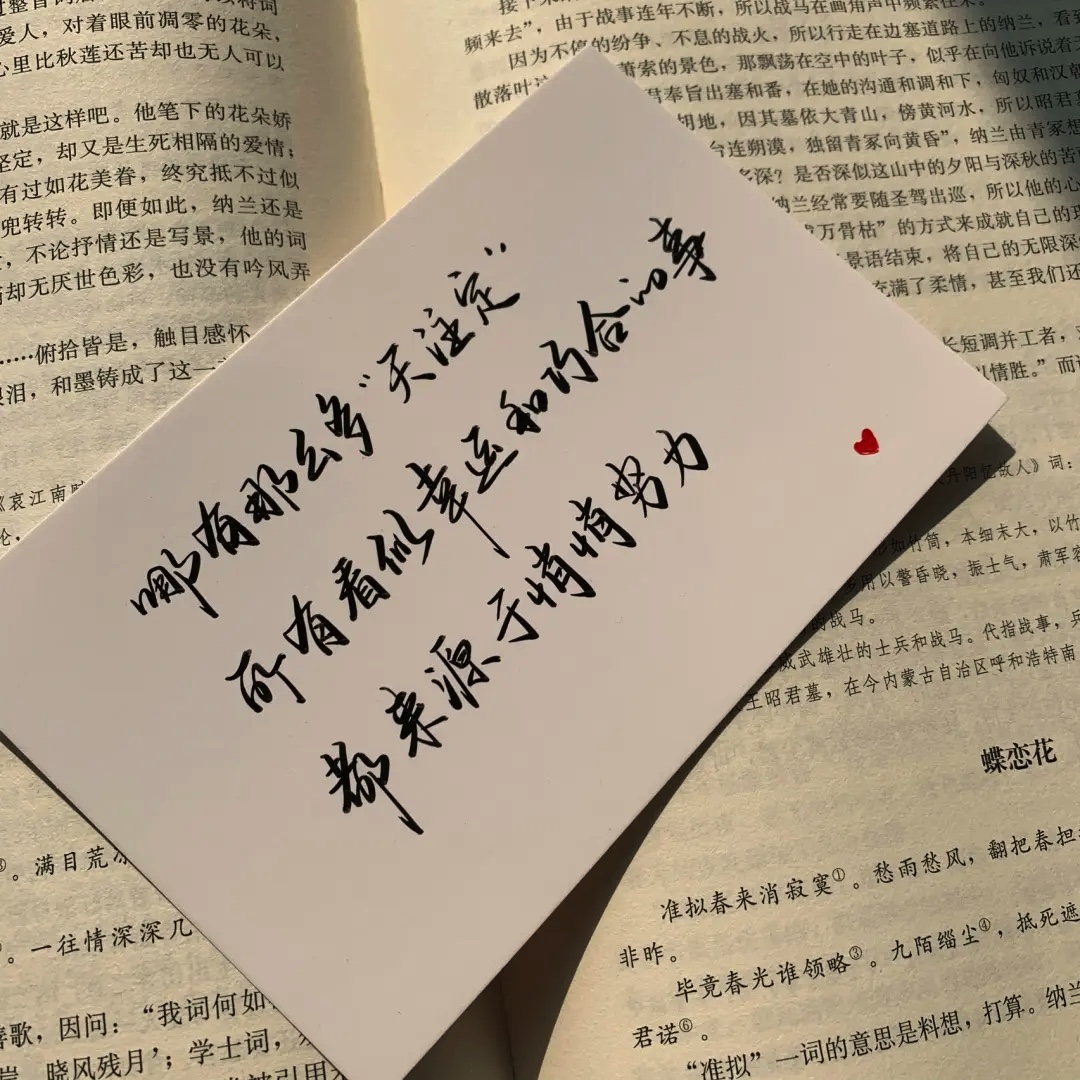 哪有那么多“天注定”
所有看似幸运和巧合的事
都来源于悄悄努力
爱人，对着眼前凋零的花朵，
心里比秋莲还苦却也无人可以
就是这样吧。他笔下的花朵娇
坚定，却又是生死相隔的爱情；
有过如花美眷，终究抵不过似
兜转转。即便如此，纳兰还是
，不论抒情还是写景，他的词
却无厌世色彩，也没有吟风弄
……俯拾皆是，触目感怀
泪，和墨铸成了这一
《哀江南
。满目荒
。一往情深深几
善歌，因问：“我词何如
晓风残月’；学士词，
频来去”，由于战事连年不断，所以战马在画角声中频繁往来。
因为不停的纷争、不息的战火，所以行走在边塞道路上的纳兰，看到
散落叶 萧索的景色，那飘荡在空中的叶子，似乎在向他诉说着
君奉旨出塞和番，在她的沟通和调和下，匈奴和汉朝
胡地，因其墓依大青山，傍黄河水，所以昭君
台连朔漠，独留青冢向黄昏”，纳兰由青冢想
多深？是否深似这山中的夕阳与深秋的苦
纳兰经常要随圣驾出巡，所以他的心
万骨枯”的方式来成就自己的
景语结束，将自己的无限深
充满了柔情，甚至我们还
长短调并工者，
情胜。”而
丹阳忆故人》词：
如竹筒，本细末大，以竹
用以警昏晓，振士气，肃军容
战马。
威武雄壮的士兵和战马。代指战事，
王昭君墓，在今内蒙古自治区呼和浩特南
蝶恋花
准拟春来消寂寞①。愁雨愁风，翻把春担
非昨。
毕竟春光谁领略③。九陌缁尘④，抵死遮
君诺⑥。
“准拟”一词的意思是料想，打算。纳兰